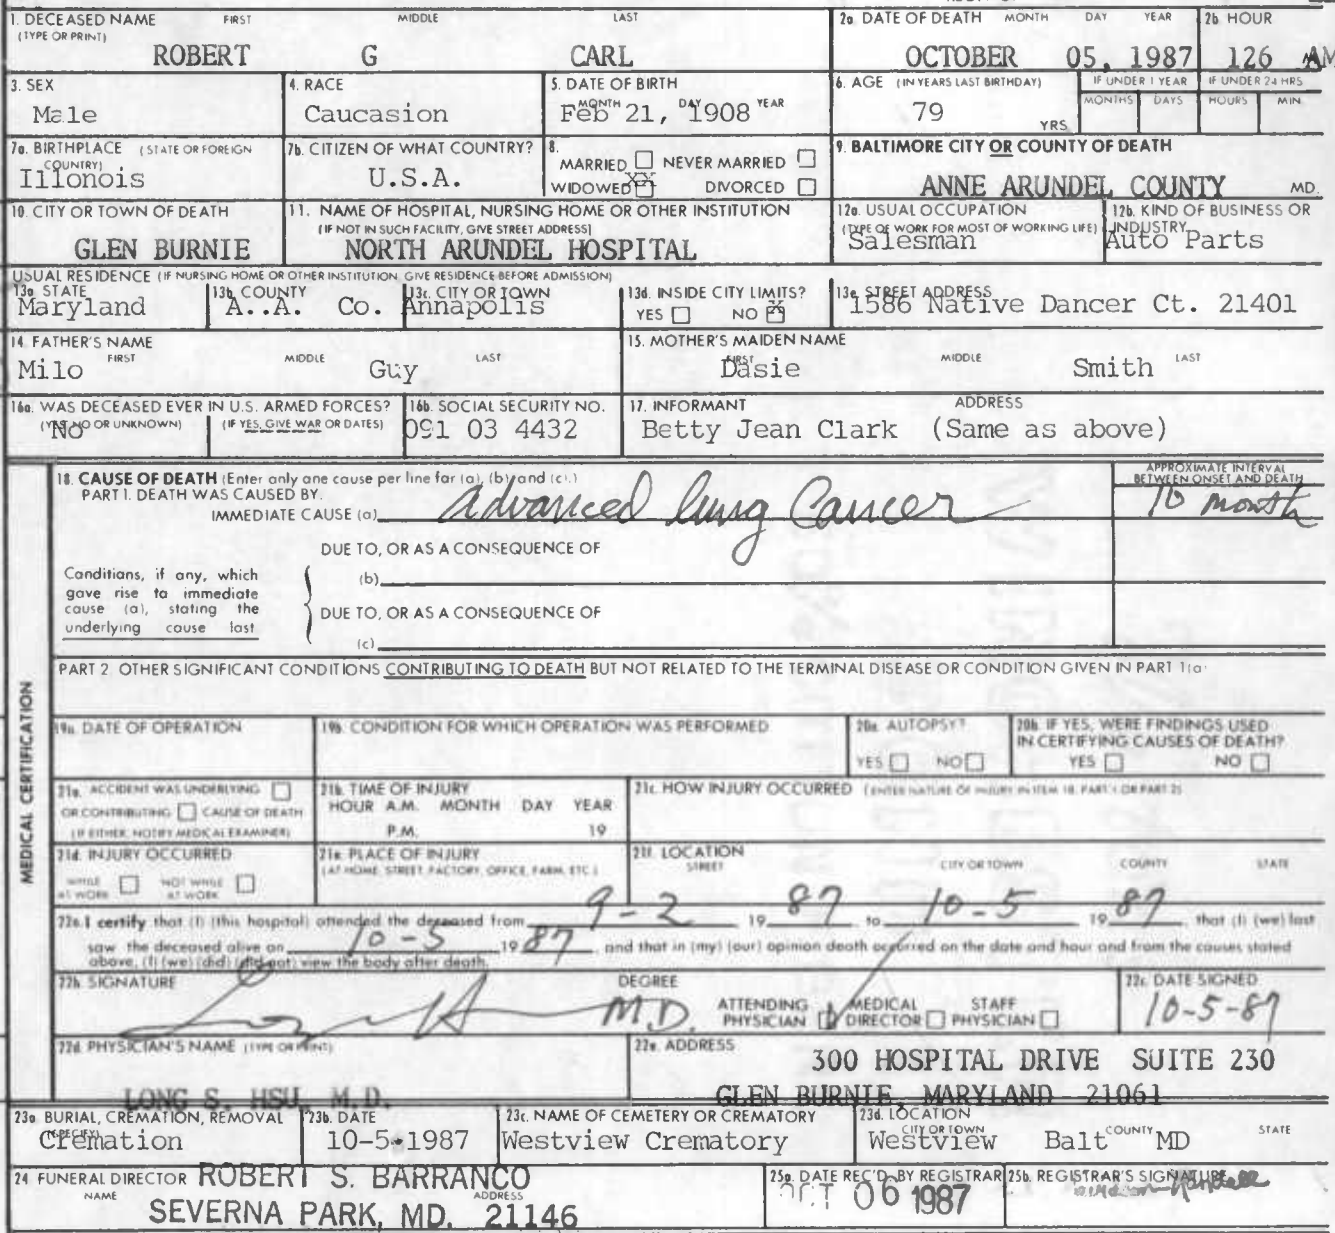 1. DECEASED NAME FIRST MIDDLE LAST
(TYPE OR PRINT)
ROBERT G CARL
2a. DATE OF DEATH MONTH DAY YEAR
OCTOBER 05, 1987
2b HOUR
126 AM
3. SEX
Male
4. RACE
Caucasion
5. DATE OF BIRTH
MONTH DAY YEAR
Feb 21, 1908
6. AGE (IN YEARS LAST BIRTHDAY)
79 YRS
IF UNDER 1 YEAR
MONTHS DAYS
IF UNDER 24 HRS
HOURS MIN.
7a. BIRTHPLACE (STATE OR FOREIGN
COUNTRY)
Illonois
7b. CITIZEN OF WHAT COUNTRY?
U.S.A.
8.
MARRIED NEVER MARRIED
WIDOWED XX DIVORCED
9. BALTIMORE CITY OR COUNTY OF DEATH
ANNE ARUNDEL COUNTY MD.
10. CITY OR TOWN OF DEATH
GLEN BURNIE
11. NAME OF HOSPITAL, NURSING HOME OR OTHER INSTITUTION
(IF NOT IN SUCH FACILITY, GIVE STREET ADDRESS)
NORTH ARUNDEL HOSPITAL
12a. USUAL OCCUPATION
(TYPE OF WORK FOR MOST OF WORKING LIFE)
Salesman
12b. KIND OF BUSINESS OR
INDUSTRY
Auto Parts
USUAL RESIDENCE (IF NURSING HOME OR OTHER INSTITUTION, GIVE RESIDENCE BEFORE ADMISSION)
13a. STATE
Maryland
13b. COUNTY
A..A. Co.
13c. CITY OR TOWN
Annapolis
13d. INSIDE CITY LIMITS?
YES NO X
13e. STREET ADDRESS
1586 Native Dancer Ct. 21401
14. FATHER'S NAME
FIRST MIDDLE LAST
Milo Guy
15. MOTHER'S MAIDEN NAME
FIRST MIDDLE LAST
Dasie Smith
16a. WAS DECEASED EVER IN U.S. ARMED FORCES?
(YES, NO OR UNKNOWN) (IF YES, GIVE WAR OR DATES)
No
16b. SOCIAL SECURITY NO.
091 03 4432
17. INFORMANT ADDRESS
Betty Jean Clark (Same as above)
MEDICAL CERTIFICATION
18. CAUSE OF DEATH (Enter only one cause per line for (a), (b) and (c).)
PART I. DEATH WAS CAUSED BY.
IMMEDIATE CAUSE (a) advanced lung Cancer
APPROXIMATE INTERVAL
BETWEEN ONSET AND DEATH
10 month
DUE TO, OR AS A CONSEQUENCE OF
(b)
Conditions, if any, which
gave rise to immediate
cause (a), stating the
underlying cause last
DUE TO, OR AS A CONSEQUENCE OF
(c)
PART 2 OTHER SIGNIFICANT CONDITIONS CONTRIBUTING TO DEATH BUT NOT RELATED TO THE TERMINAL DISEASE OR CONDITION GIVEN IN PART 1(a)
19a. DATE OF OPERATION
19b. CONDITION FOR WHICH OPERATION WAS PERFORMED
20a. AUTOPSY?
YES NO
20b. IF YES, WERE FINDINGS USED
IN CERTIFYING CAUSES OF DEATH?
YES NO
21a. ACCIDENT WAS UNDERLYING
OR CONTRIBUTING CAUSE OF DEATH
(IF EITHER, NOTIFY MEDICAL EXAMINER)
21b. TIME OF INJURY
HOUR A.M. MONTH DAY YEAR
P.M. 19
21c. HOW INJURY OCCURRED (ENTER NATURE OF INJURY IN ITEM 18, PART 1 OR PART 2)
21d. INJURY OCCURRED
WHILE AT WORK NOT WHILE AT WORK
21e. PLACE OF INJURY
(AT HOME, STREET, FACTORY, OFFICE, FARM, ETC.)
21f. LOCATION
STREET CITY OR TOWN COUNTY STATE
22a. I certify that (I) (this hospital) attended the deceased from 9-2 19 87 to 10-5 19 87 that (I) (we) last
saw the deceased alive on 10-5 19 87, and that in (my) (our) opinion death occurred on the date and hour and from the causes stated
above, (I) (we) (did) (did not) view the body after death.
22b. SIGNATURE
DEGREE
M.D.
ATTENDING PHYSICIAN MEDICAL DIRECTOR STAFF PHYSICIAN
22c. DATE SIGNED
10-5-87
22d. PHYSICIAN'S NAME (TYPE OR PRINT)
LONG S. HSU, M.D.
22e. ADDRESS
300 HOSPITAL DRIVE SUITE 230
GLEN BURNIE, MARYLAND 21061
23a. BURIAL, CREMATION, REMOVAL
(SPECIFY)
Cremation
23b. DATE
10-5-1987
23c. NAME OF CEMETERY OR CREMATORY
Westview Crematory
23d. LOCATION
CITY OR TOWN COUNTY STATE
Westview Balt MD
24 FUNERAL DIRECTOR ROBERT S. BARRANCO
NAME ADDRESS
SEVERNA PARK, MD. 21146
25a. DATE REC'D. BY REGISTRAR
OCT 06 1987
25b. REGISTRAR'S SIGNATURE